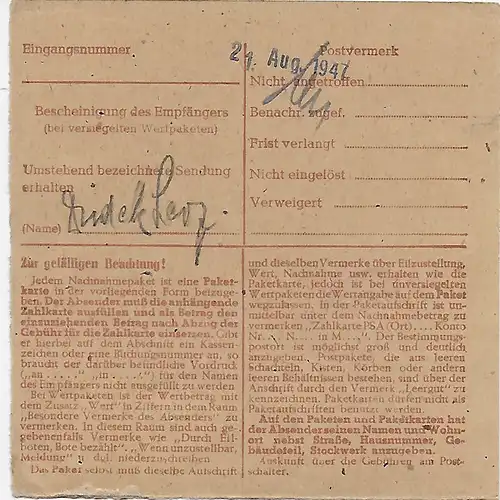 Eingangsnummer
Postvermerk
Aug. 1947
Nicht angetroffen
Bescheinigung des Empfängers
(bei versiegelten Wertpaketen)
Benachr. zugef.
Frist verlangt
Umstehend bezeichnete Sendung
erhalten
Nicht eingelöst
Verweigert
(Name)
Zur gefälligen Beachtung!
Jedem Nachnahmepaket ist eine Paket-
karte in der vorliegenden Form beizuge-
ben. Der Absender muß die anhängende
Zahlkarte ausfüllen und als Betrag den
einzuziehenden Betrag nach Abzug der
Gebühr für die Zahlkarte einsetzen. Gibt
er hierbei auf dem Abschnitt ein Kassen-
zeichen oder eine Buchungsnummer an, so
braucht der darüber befindliche Vordruck
(„an . . . .“ „in . . . .“) für den Namen
des Empfängers nicht ausgefüllt zu werden
Bei Wertpaketen ist der Wertbetrag mit
dem Zusatz „Wert“ in Ziffern in dem Raum
„Besondere Vermerke des Absenders“ zu
vermerken. In diesem Raum sind auch ge-
gebenenfalls Vermerke wie „Durch Eil-
boten, Bote bezahlt“, „Wenn unzustellbar,
Meldung“ u. dgl. niederzuschreiben
Das Paket selbst muß dieselbe Aufschrift
und dieselben Vermerke über Eilzustellung,
Wert, Nachnahme usw. erhalten wie die
Paketkarte, jedoch ist bei unversiegelten
Wertpaketen die Wertangabe auf dem Paket
wegzulassen. In der Paketaufschrift ist un-
mittelbar unter dem Nachnahmebetrag zu
vermerken „Zahlkarte PSA (Ort) .... Konto
Nr. ... N.... in M....“. Der Bestimmungs-
ort ist möglichst groß und deutlich
anzugeben. Postpakete, die aus leeren
Schachteln, Kisten, Körben oder andern
leeren Behältnissen bestehen, sind über der
Anschrift durch den Vermerk „Leergut“ zu
kennzeichnen. Paketkarten dürfen nicht als
Paketaufschriften benutzt werden.
Auf den Paketen und Paketkarten hat
der Absender seinen Namen und Wohn-
ort nebst Straße, Hausnummer, Ge-
bäudeteil, Stockwerk anzugeben.
Auskunft über die Gebühren am Post-
schalter.